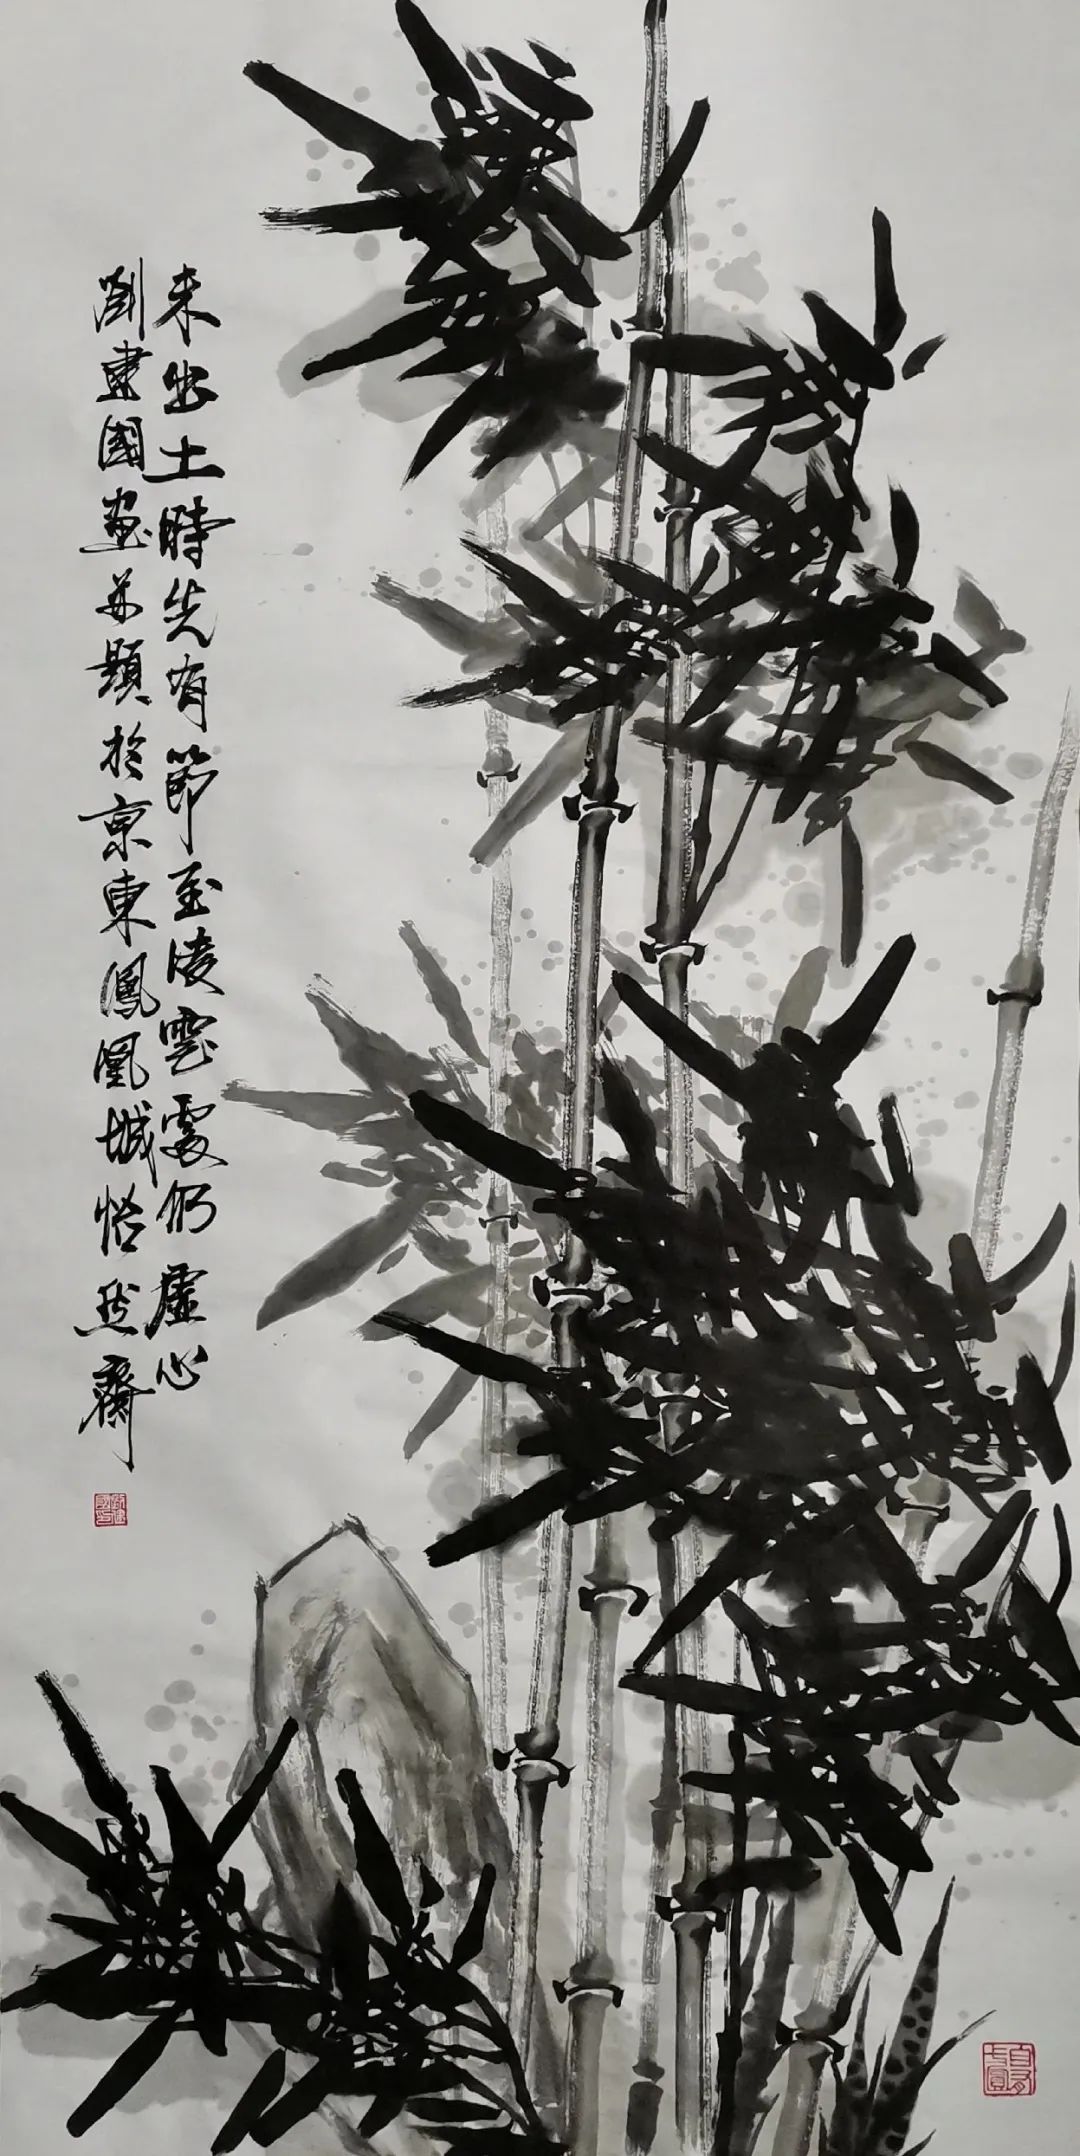 未出土時先有節至凌雲處仍虛心
劉建國畫并題於京東鳳凰城怡然齋
劉建國印